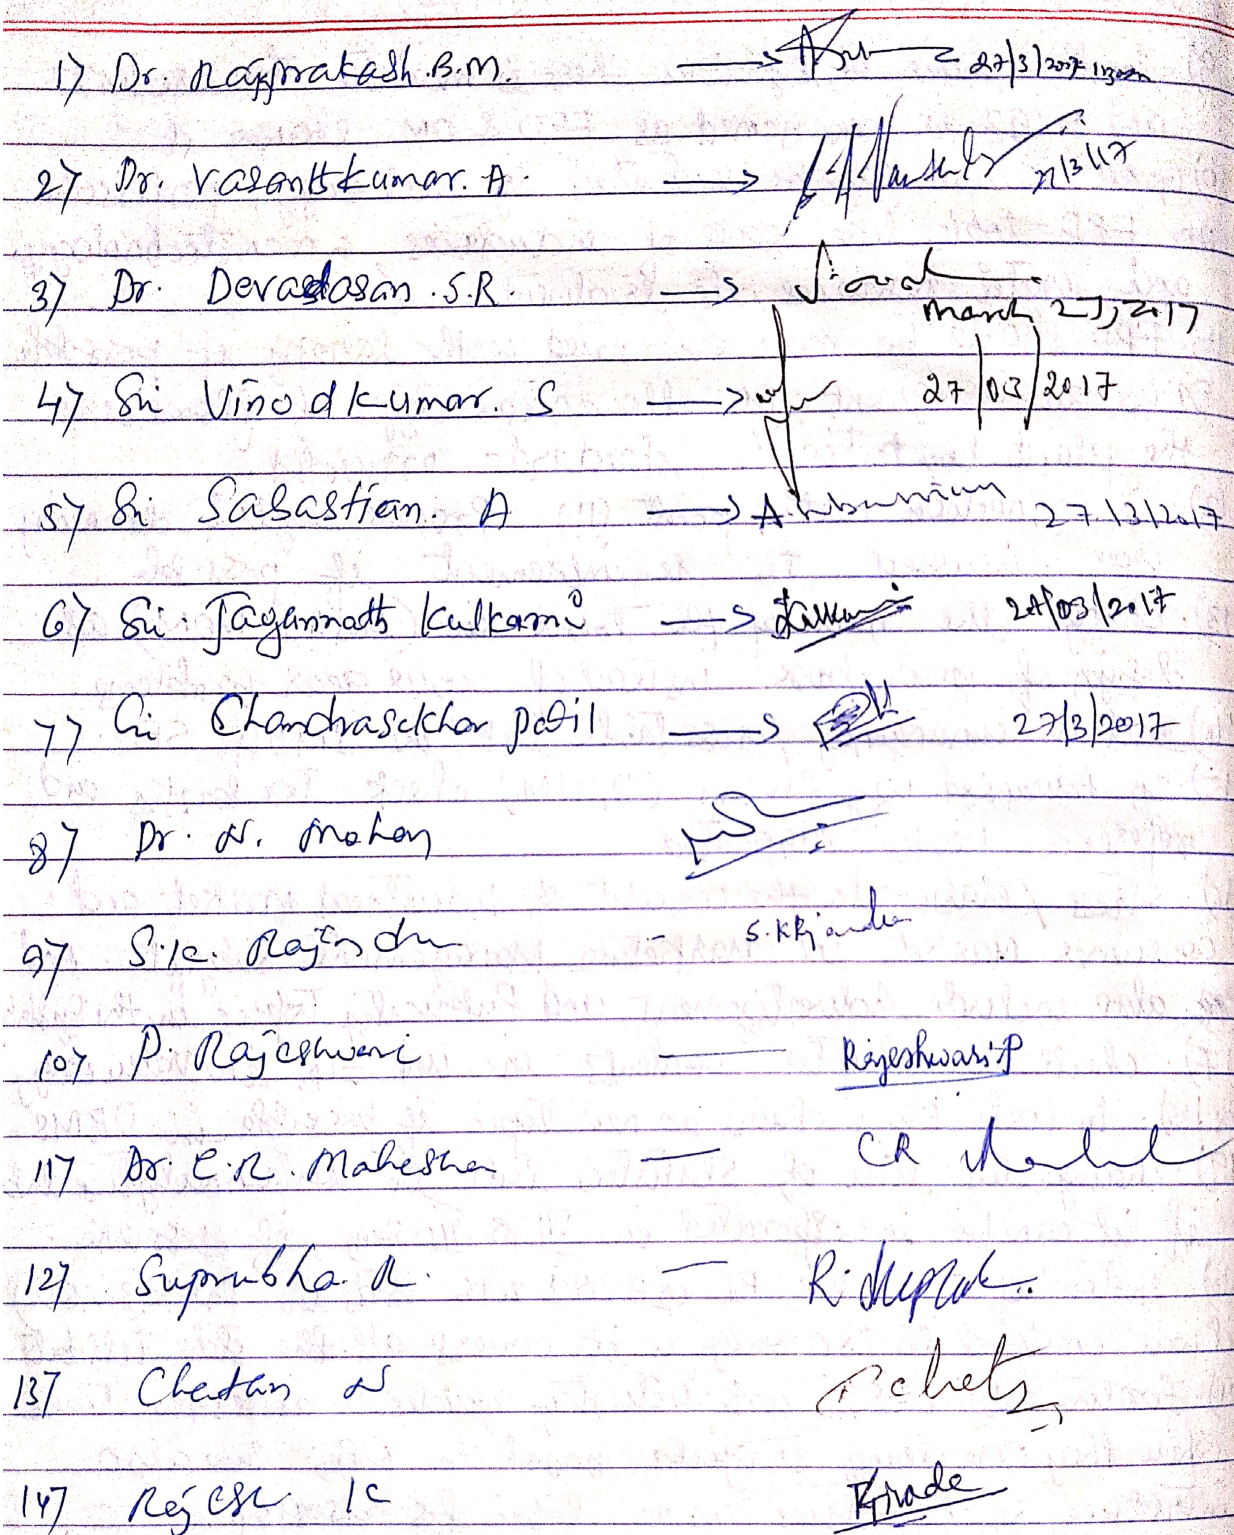 1) Dr. Rajprakash .B.M. → 27/3/2017
2) Dr. Vasanthkumar. A. → 27/3/17
3) Dr. Devadasan .S.R. →
March 27, 2017
4) Sri Vinodkumar. S → 27/03/2017
5) Sri Sabastian. A → 27/3/2017
6) Sri. Jagannath Kulkarni → 27/03/2017
7) Sri Chandrasekhar patil → 27/3/2017
8) Dr. N. Mohan
9) S.K. Rajendra - S.K Rajendra
10) P. Rajeshwari — Rajeshwari.P
11) Dr. C.R. Mahesha — CR
12) Suprabha. R. — R.
13) Chethan N
14) Rajesh K